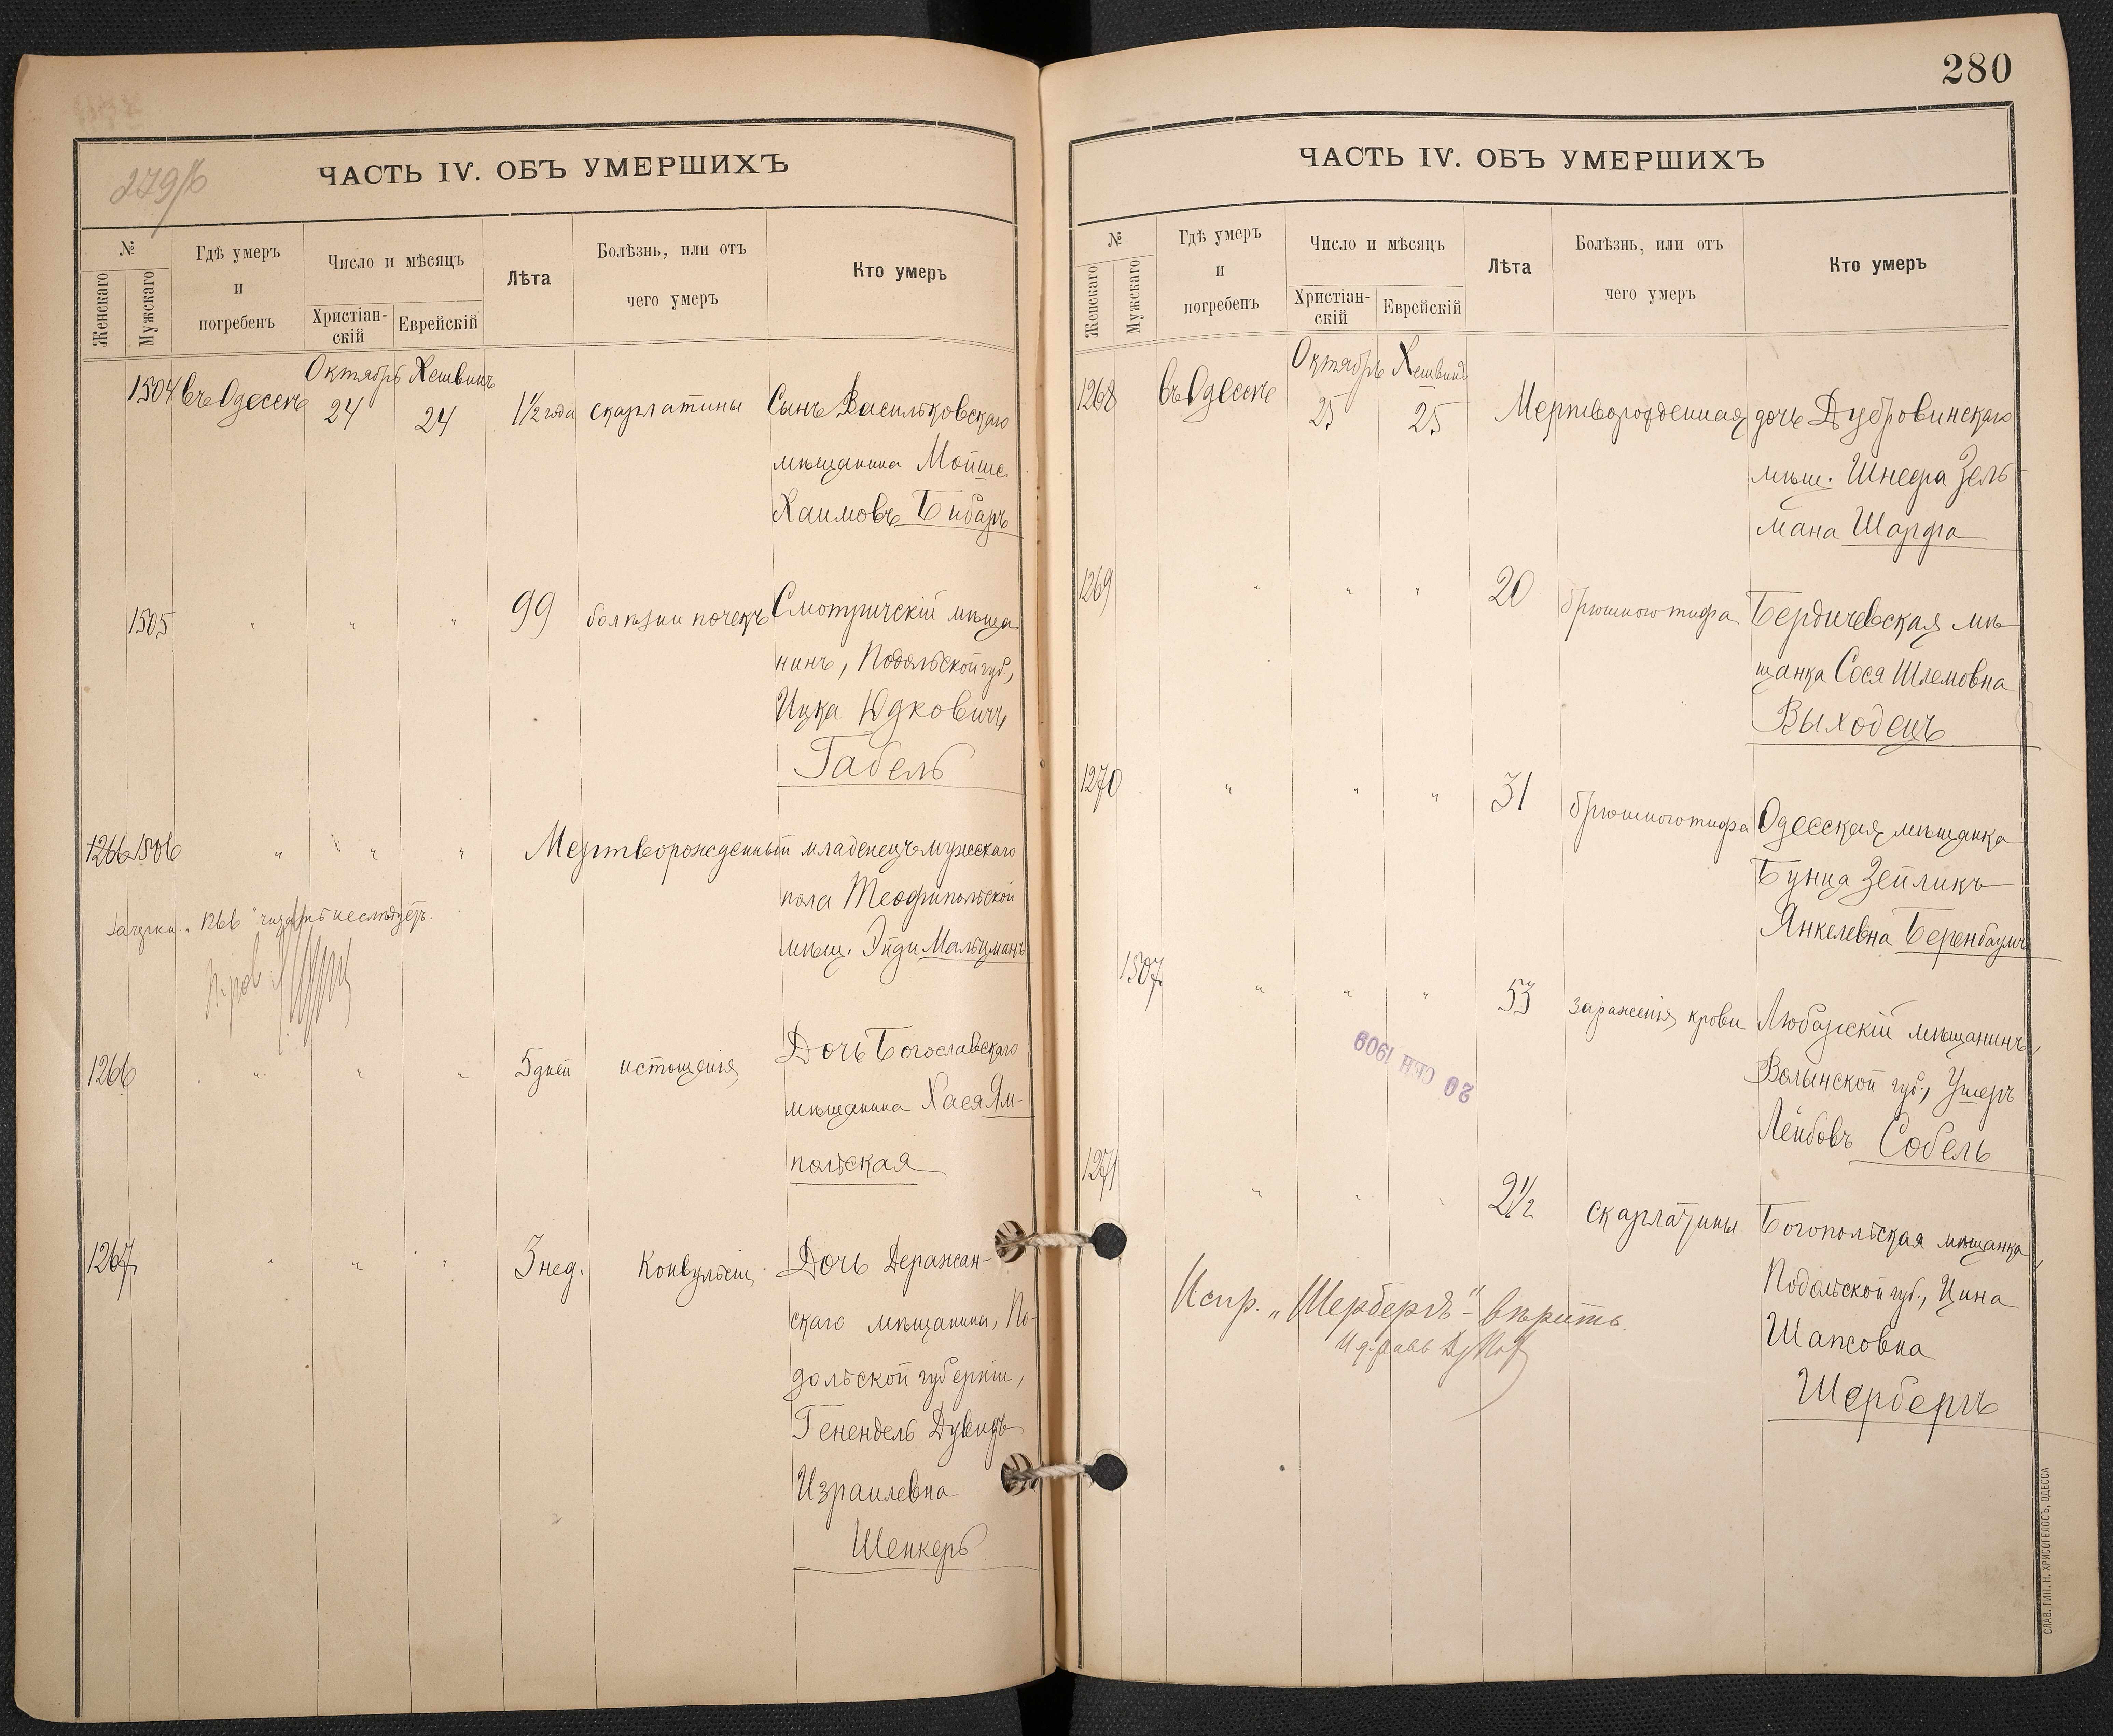 279/б
ЧАСТЬ IV. ОБЪ УМЕРШИХЪ
№
Женскаго
Мужскаго
Гдѣ умеръ
и
погребенъ
Число и мѣсяцъ
Христіан-
скій
Еврейскій
Лѣта
Болѣзнь, или отъ
чего умеръ
Кто умеръ
Октябрь Хешвинъ
1504 въ Одессѣ 24 24 1½ года скарлатины Сынъ Васильковскаго
мѣщанина Мойше
Хаимовъ Бибаръ
1505 " " " 99 болѣзни почекъ Смотричскій мѣща
нинъ, Подольской губ.,
Ицка Юдковичъ
Габель
1266 1506 " " " Мертворожденный младенецъ мужескаго
пола Теофипольской
мѣщ. Эйди Мальцманъ
Зачеркн. „1266" читать не слѣдуетъ.
1266 " " " 5 дней истощенія Дочь Богославскаго
мѣщанина Хася Ям-
польская
1267 " " " 3 нед. Конвульсіи Дочь Деражан-
скаго мѣщанина, По-
дольской губерніи,
Генендель Дувидъ
Израилевна
Шенкеръ
280
ЧАСТЬ IV. ОБЪ УМЕРШИХЪ
№
Женскаго
Мужскаго
Гдѣ умеръ
и
погребенъ
Число и мѣсяцъ
Христіан-
скій
Еврейскій
Лѣта
Болѣзнь, или отъ
чего умеръ
Кто умеръ
Октябрь Хешвинъ
1268 въ Одессѣ 25 25 Мертворожденная дочь Дубровинскаго
мѣщ. Шнеера Зель
мана Шарфа
1269 " " " 20 брюшного тифа Бердичевская мѣ
щанка Сося Шлемовна
Выходецъ
1270 " " " 31 брюшного тифа Одесская мѣщанка
Бунца Зейликъ
Янкелевна Беренбаумъ
1507 " " " 53 зараженія крови Любарскій мѣщанинъ,
Волынской губ., Ушеръ
Лейбовъ Собель
20 СЕН 1909
1271 " " " 2½ скарлатины Богопольская мѣщанка,
Подольской губ., Цина
Шапсовна
Шерберъ
Испр. „Шерберъ" - вѣрить
СЛАВ. ТИП. Н. ХРИСОГЕЛОСЪ, ОДЕССА